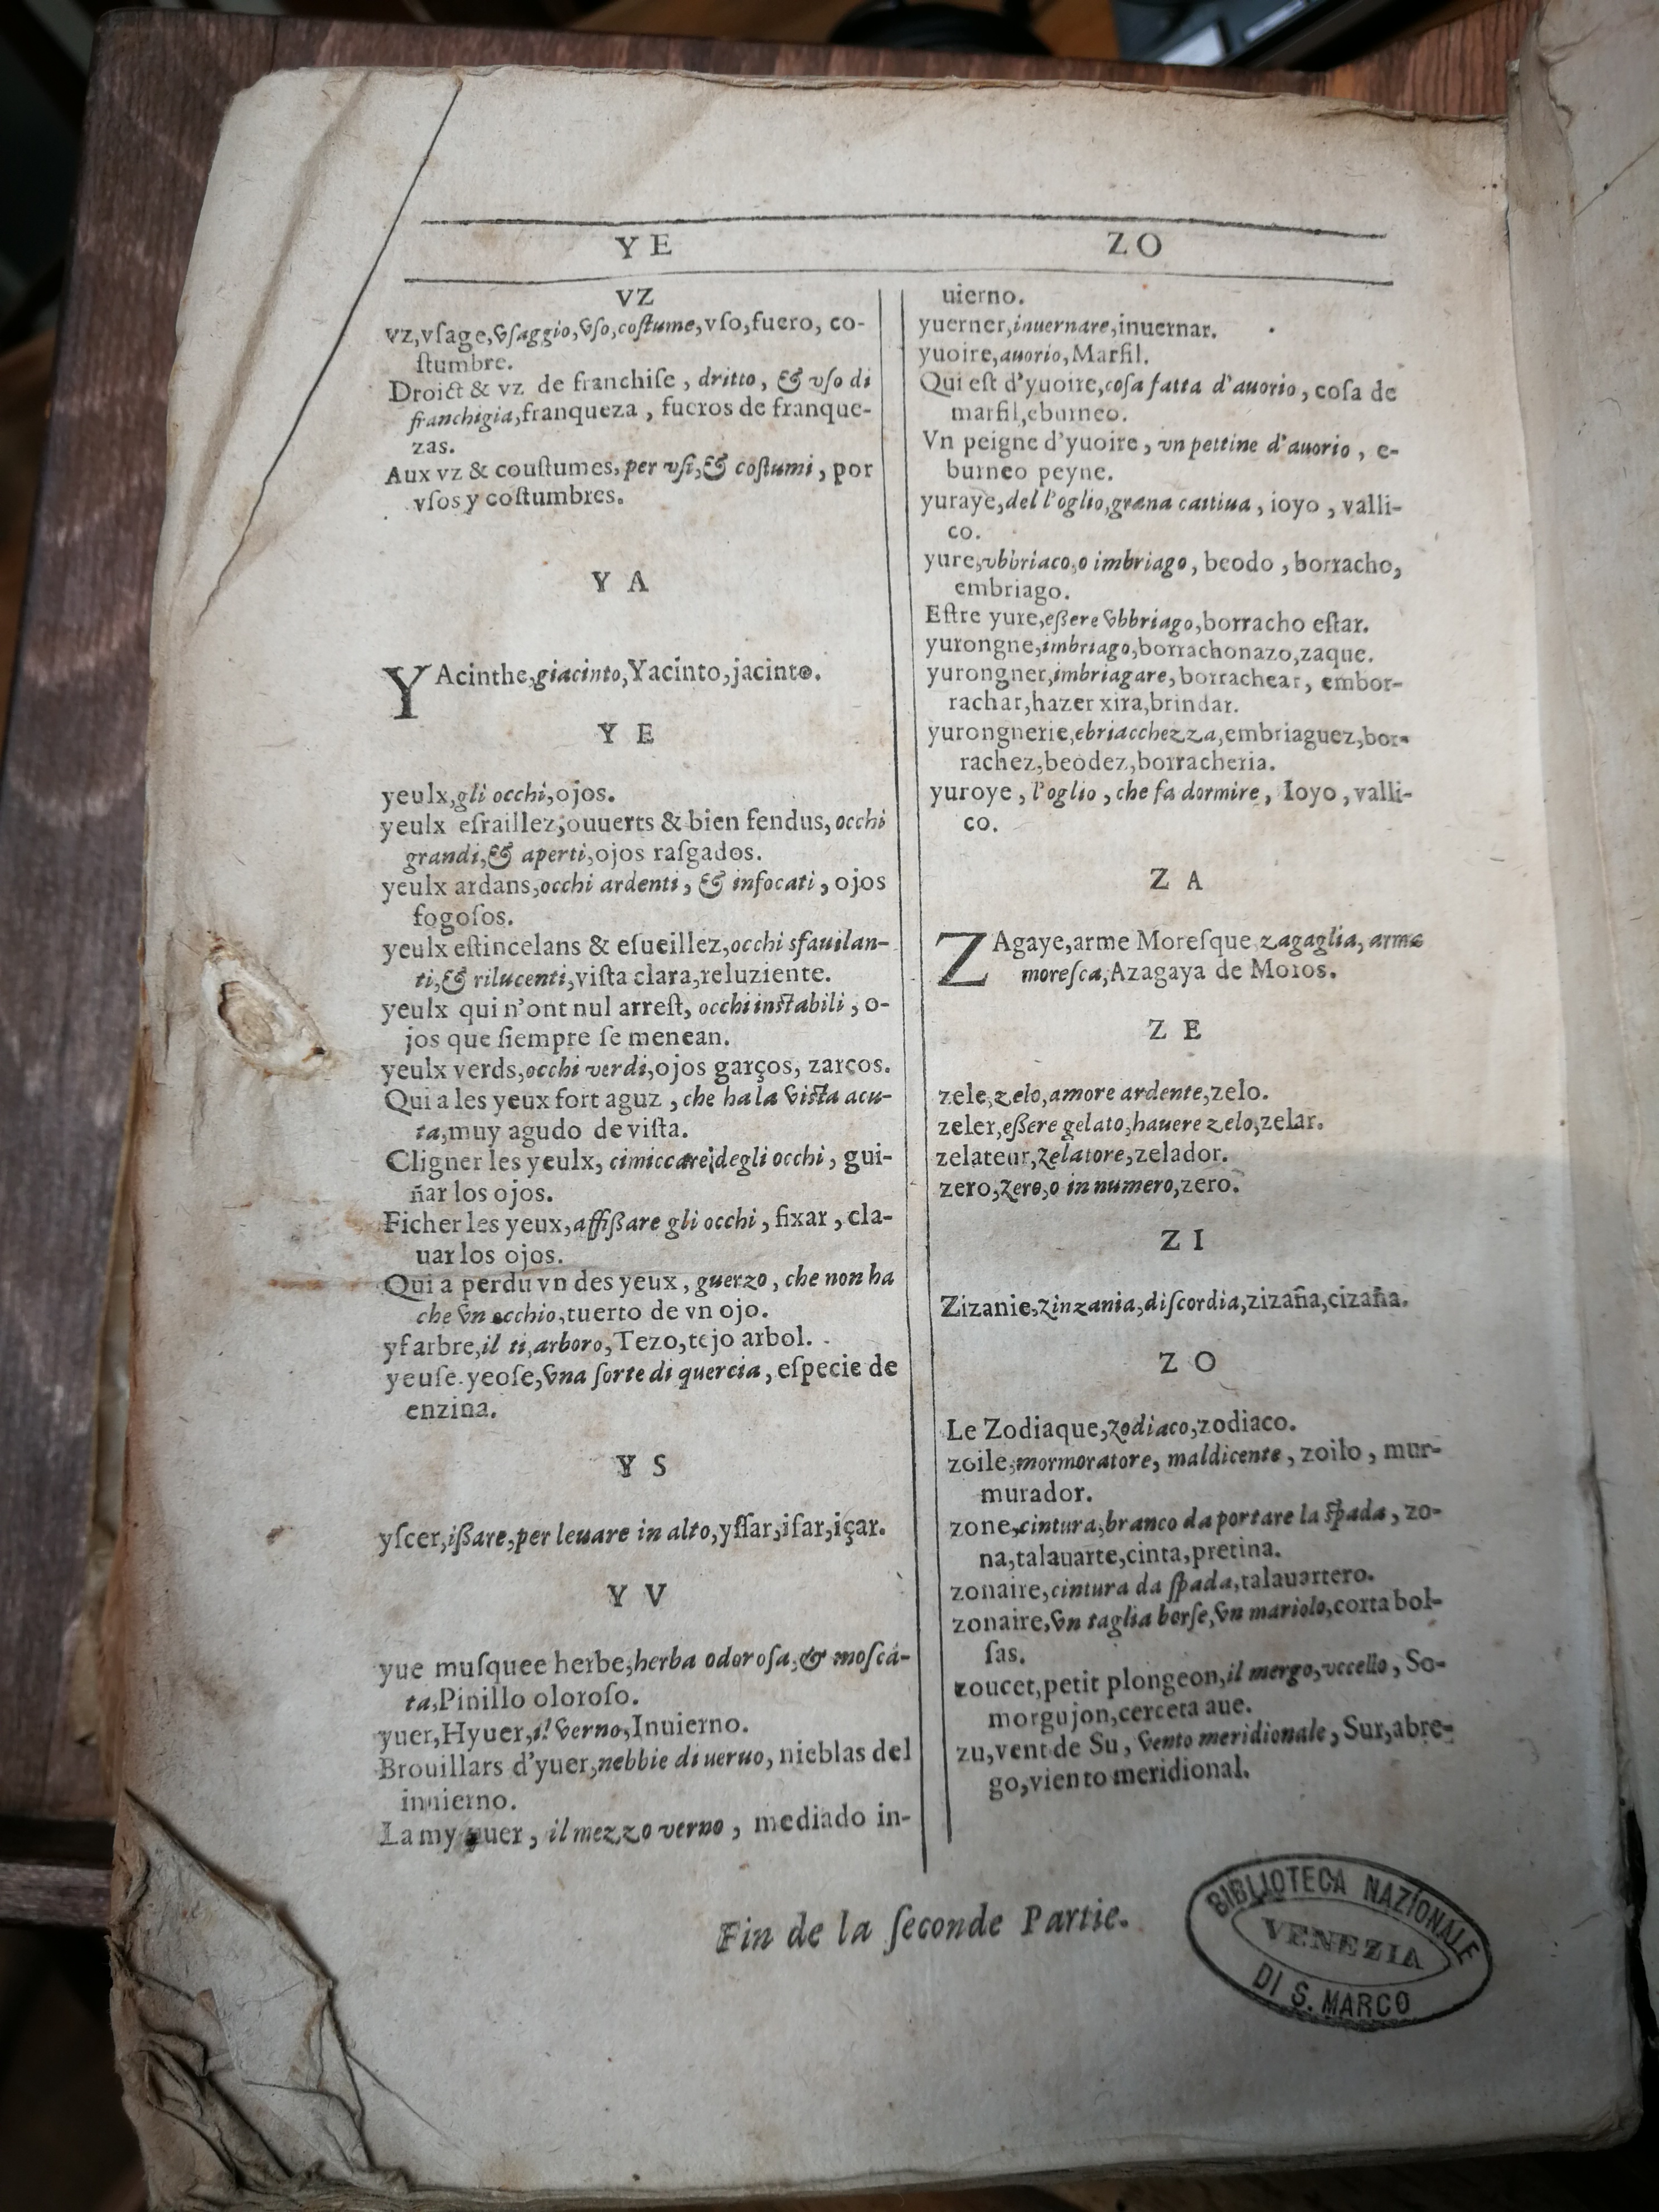 YE
ZO
VZ
vz,vſage,vſaggio,vſo,coſtume,vſo,fuero, co-
ſtumbre.
Droict & vz de franchiſe, dritto, & vſo di
franchigia,franqueza, fueros de franque-
zas.
Aux vz & couſtumes, per vſi,& coſtumi, por
vſos y coſtumbres.
Y A
YAcinthe,giacinto,Yacinto,jacinto.
Y E
yeulx,gli occhi,ojos.
yeulx eſraillez,ouuerts & bien fendus, occhi
grandi,& aperti,ojos raſgados.
yeulx ardans,occhi ardenti, & infocati, ojos
fogoſos.
yeulx eſtincelans & eſueillez,occhi sfauilan-
ti,& rilucenti,viſta clara,reluziente.
yeulx qui n'ont nul arreſt, occhi instabili, o-
jos que ſiempre ſe menean.
yeulx verds,occhi verdi,ojos garços, zarcos.
Qui a les yeux fort aguz, che ha la vista acu-
ta,muy agudo de viſta.
Cligner les yeulx, cimiccare degli occhi, gui-
ñar los ojos.
Ficher les yeux,affißare gli occhi, fixar, cla-
uar los ojos.
Qui a perdu vn des yeux, guerzo, che non ha
che vn occhio,tuerto de vn ojo.
yf arbre,il ti,arboro,Tezo,tejo arbol.
yeuſe.yeoſe,vna ſorte di quercia, eſpecie de
enzina.
Y S
yſcer,ißare,per leuare in alto,yſſar,iſar,içar.
Y V
yue muſquee herbe,herba odoroſa,& moſca-
ta,Pinillo oloroſo.
yuer,Hyuer,il verno,Inuierno.
Brouillars d'yuer,nebbie di ueruo, nieblas del
innierno.
La my yuer, il mezzo verno, mediado in-
uierno.
yuerner,inuernare,inuernar.
yuoire,auorio,Marfil.
Qui eſt d'yuoire,coſa fatta d'auorio, coſa de
marfil,eburneo.
Vn peigne d'yuoire, vn pettine d'auorio, e-
burneo peyne.
yuraye,del l'oglio,grana cattiua, ioyo, valli-
co.
yure,vbbriaco,o imbriago, beodo, borracho,
embriago.
Eſtre yure,eßere vbbriago,borracho eſtar.
yurongne,imbriago,borrachonazo,zaque.
yurongner,imbriagare, borrachear, embor-
rachar,hazer xira,brindar.
yurongnerie,ebriacchezza,embriaguez,bor-
rachez,beodez,borracheria.
yuroye, l'oglio, che fa dormire, Ioyo, valli-
co.
Z A
ZAgaye,arme Moreſque,zagaglia, arma
moreſca,Azagaya de Moros.
Z E
zele,zelo,amore ardente,zelo.
zeler,eßere gelato,hauere zelo,zelar.
zelateur,zelatore,zelador.
zero,zero,o in numero,zero.
Z I
Zizanie,zinzania,diſcordia,zizaña,cizaña.
Z O
Le Zodiaque,zodiaco,zodiaco.
zoile,mormoratore, maldicente, zoilo, mur-
murador.
zone,cintura,branco da portare la ſpada, zo-
na,talauarte,cinta,pretina.
zonaire,cintura da ſpada,talauartero.
zonaire,vn taglia borſe,vn mariolo,corta bol-
ſas.
zoucet,petit plongeon,il mergo,vccello, So-
morgujon,cerceta aue.
zu,vent de Su, vento meridionale, Sur,abre-
go,viento meridional.
Fin de la ſeconde Partie.
BIBLIOTECA NAZIONALE
VENEZIA
DI S. MARCO